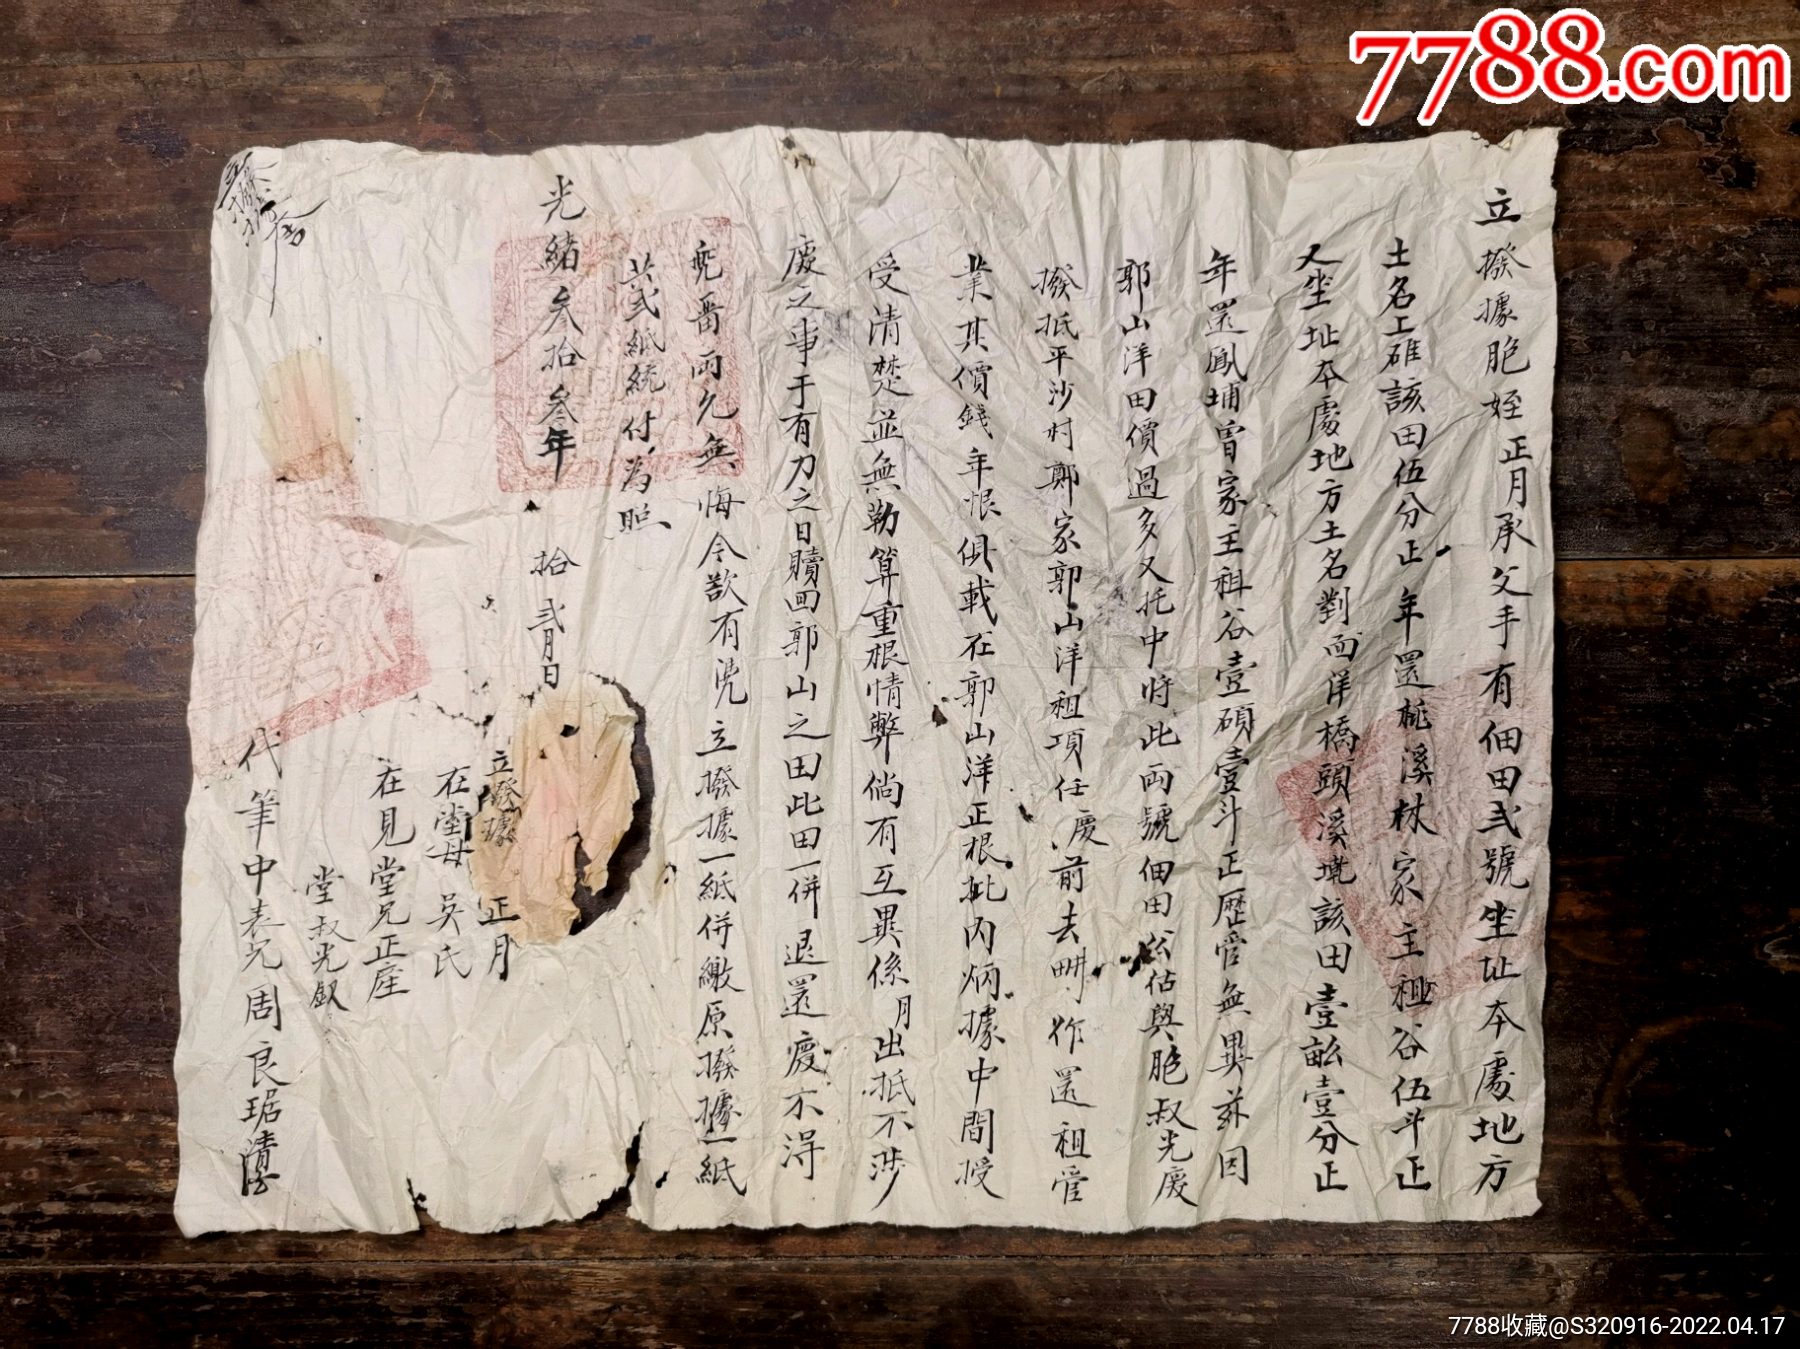 7788.com
立撥據胞姪正月承父手有佃田弍號坐址本處地方
土名工碓該田伍分正年還桃溪杖家主租谷伍斗正
又坐址本處地方土名對面洋橋頭溪墘該田壹畝壹分正
年還鳳埔曾家主租谷壹碩壹斗正歷管無異茲因
郭山洋田價過多又托中將此兩號佃田公估與胞叔光慶
撥抵平沙村鄭家郭山洋租項任慶前去畊作還租管
業其價錢年根俱載在郭山洋正根批內炳據中間授
受清楚並無勒算重根情弊倘有互異係月出抵不涉
慶之事于有力之日贖回郭山之田此田一併退還慶不得
兜畱兩允無悔今欲有凴立撥據一紙併繳原撥據一紙
共弍紙統付為照
光緒叁拾叁年 拾弍月日
立撥據 正月
在堂母 吳氏
在見堂兄正座
堂叔光釵
代筆中表兄周良琚
7788收藏@S320916-2022.04.17